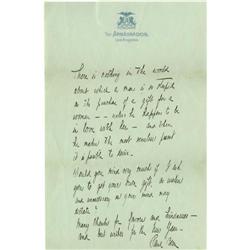 The Ambassador
Los Angeles
There is nothing in the world
about which a man is so stupid
as the purchase of a gift for a
woman -- unless he happens to be
in love with her -- and then
he makes the most
it is possible to
Would you mind very much if I ask
you to get your own gift, as
and unnecessary as your mind may
dictate?
Many thanks for favors and kindnesses--
and best wishes for the New Year--